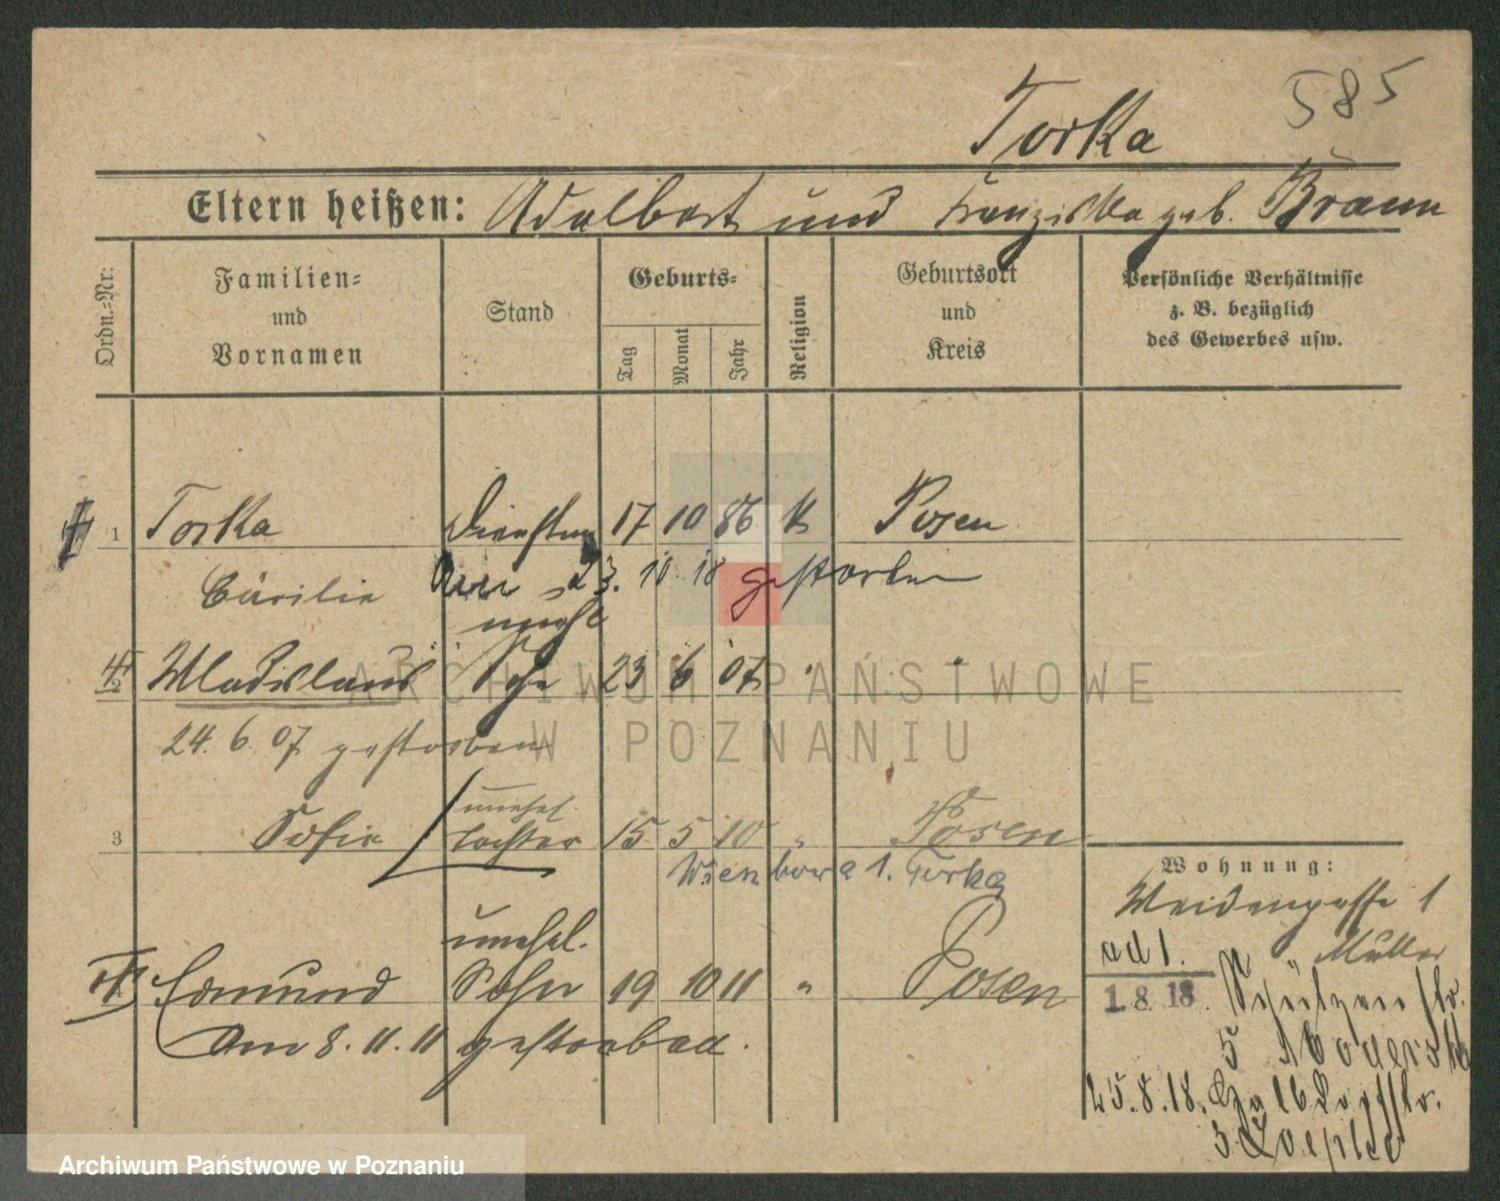 585
Torka
Eltern heißen: Adalbert und Franziska geb. Braun
Ordn.-Nr:
Familien- und Vornamen
Stand
Geburts-
Tag
Monat
Jahr
Religion
Geburtsort und Kreis
Persönliche Verhältnisse z. B. bezüglich des Gewerbes usw.
1 Torka 17 10 86 k Posen
Cäcilie
23. 10 18 gestorben
unehl
2 Wladislaus Sohn 23 6 07 " "
24. 6. 07 gestorben
unehel.
3 Sofie Tochter 15 5 10 " Posen
1. Torka
Wohnung:
Weidengasse 1
Müller
unehel.
Edmund Sohn 19 10 11 " Posen
Am 8. 11. 11 gestorben.
ad 1.
1.8.18. Schützenstr.
5
25.8.18. Halbdorfstr.
3
ARCHIWUM PAŃSTWOWE
W POZNANIU
Archiwum Państwowe w Poznaniu